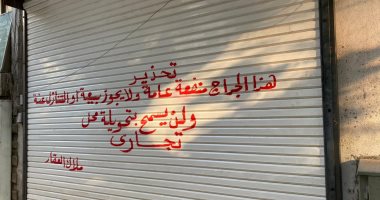 تحذير
هذا الجراج منفعة عامة ولا يجوز بيعة أو التنازل عنة
ولن يسمح بتحويلة محل
تجارى
ملاك العقار